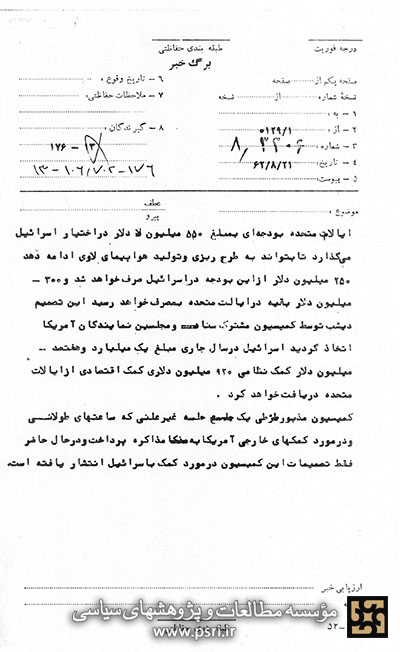 درجه فوریت
طبقه بندی حفاظتی
برگ خبر
صفحه یکم از صفحه
نسخهٔ شماره از نسخه
۱ - به :
۲ - از : ۰۱۲۹/۱
۳ - شماره : ۸,۳۳۰۶
۴ - تاریخ : ۶۲/۸/۲۱
۵ - پیوست :
۶ - تاریخ وقوع :
۷ - ملاحظات حفاظتی :
۸ - گیرندگان :
۱۷۶ - ۱۳
۱۳-۱۰۶/۷۰۲-۱۷۶
موضوع :
عطف
پیرو
ایالات متحده بودجه‌ای بمبلغ ۵۵۰ میلیون دلار در اختیار اسرائیل
میگذارد تا بتواند به طرح ریزی و تولید هواپیمای لاوی ادامه دهد
۲۵۰ میلیون دلار از این بودجه در اسرائیل صرف خواهد شد و ۳۰۰ -
میلیون دلار بقیه در ایالت متحده بمصرف خواهد رسید این تصمیم
دیشب توسط کمیسیون مشترک سنا و مجلسین نمایندگان آمریکا
اتخاذ گردید اسرائیل در سال جاری مبلغ یک میلیارد و هفتصد -
میلیون دلار کمک نظامی ۹۲۰ میلیون دلاری کمک اقتصادی از ایالات
متحده دریافت خواهد کرد .
کمیسیون مذبور طی یک جلسه غیر علنی که ساعتهای طولانی
و در مورد کمکهای خارجی آمریکا به مذاکره پرداخت و در حال حاضر
فقط تصمیمات این کمیسیون در مورد کمک باسرائیل انتشار یافته است.
ارزیابی خبر
مؤسسه مطالعات و پژوهشهای سیاسی
www.psri.ir
۵۲